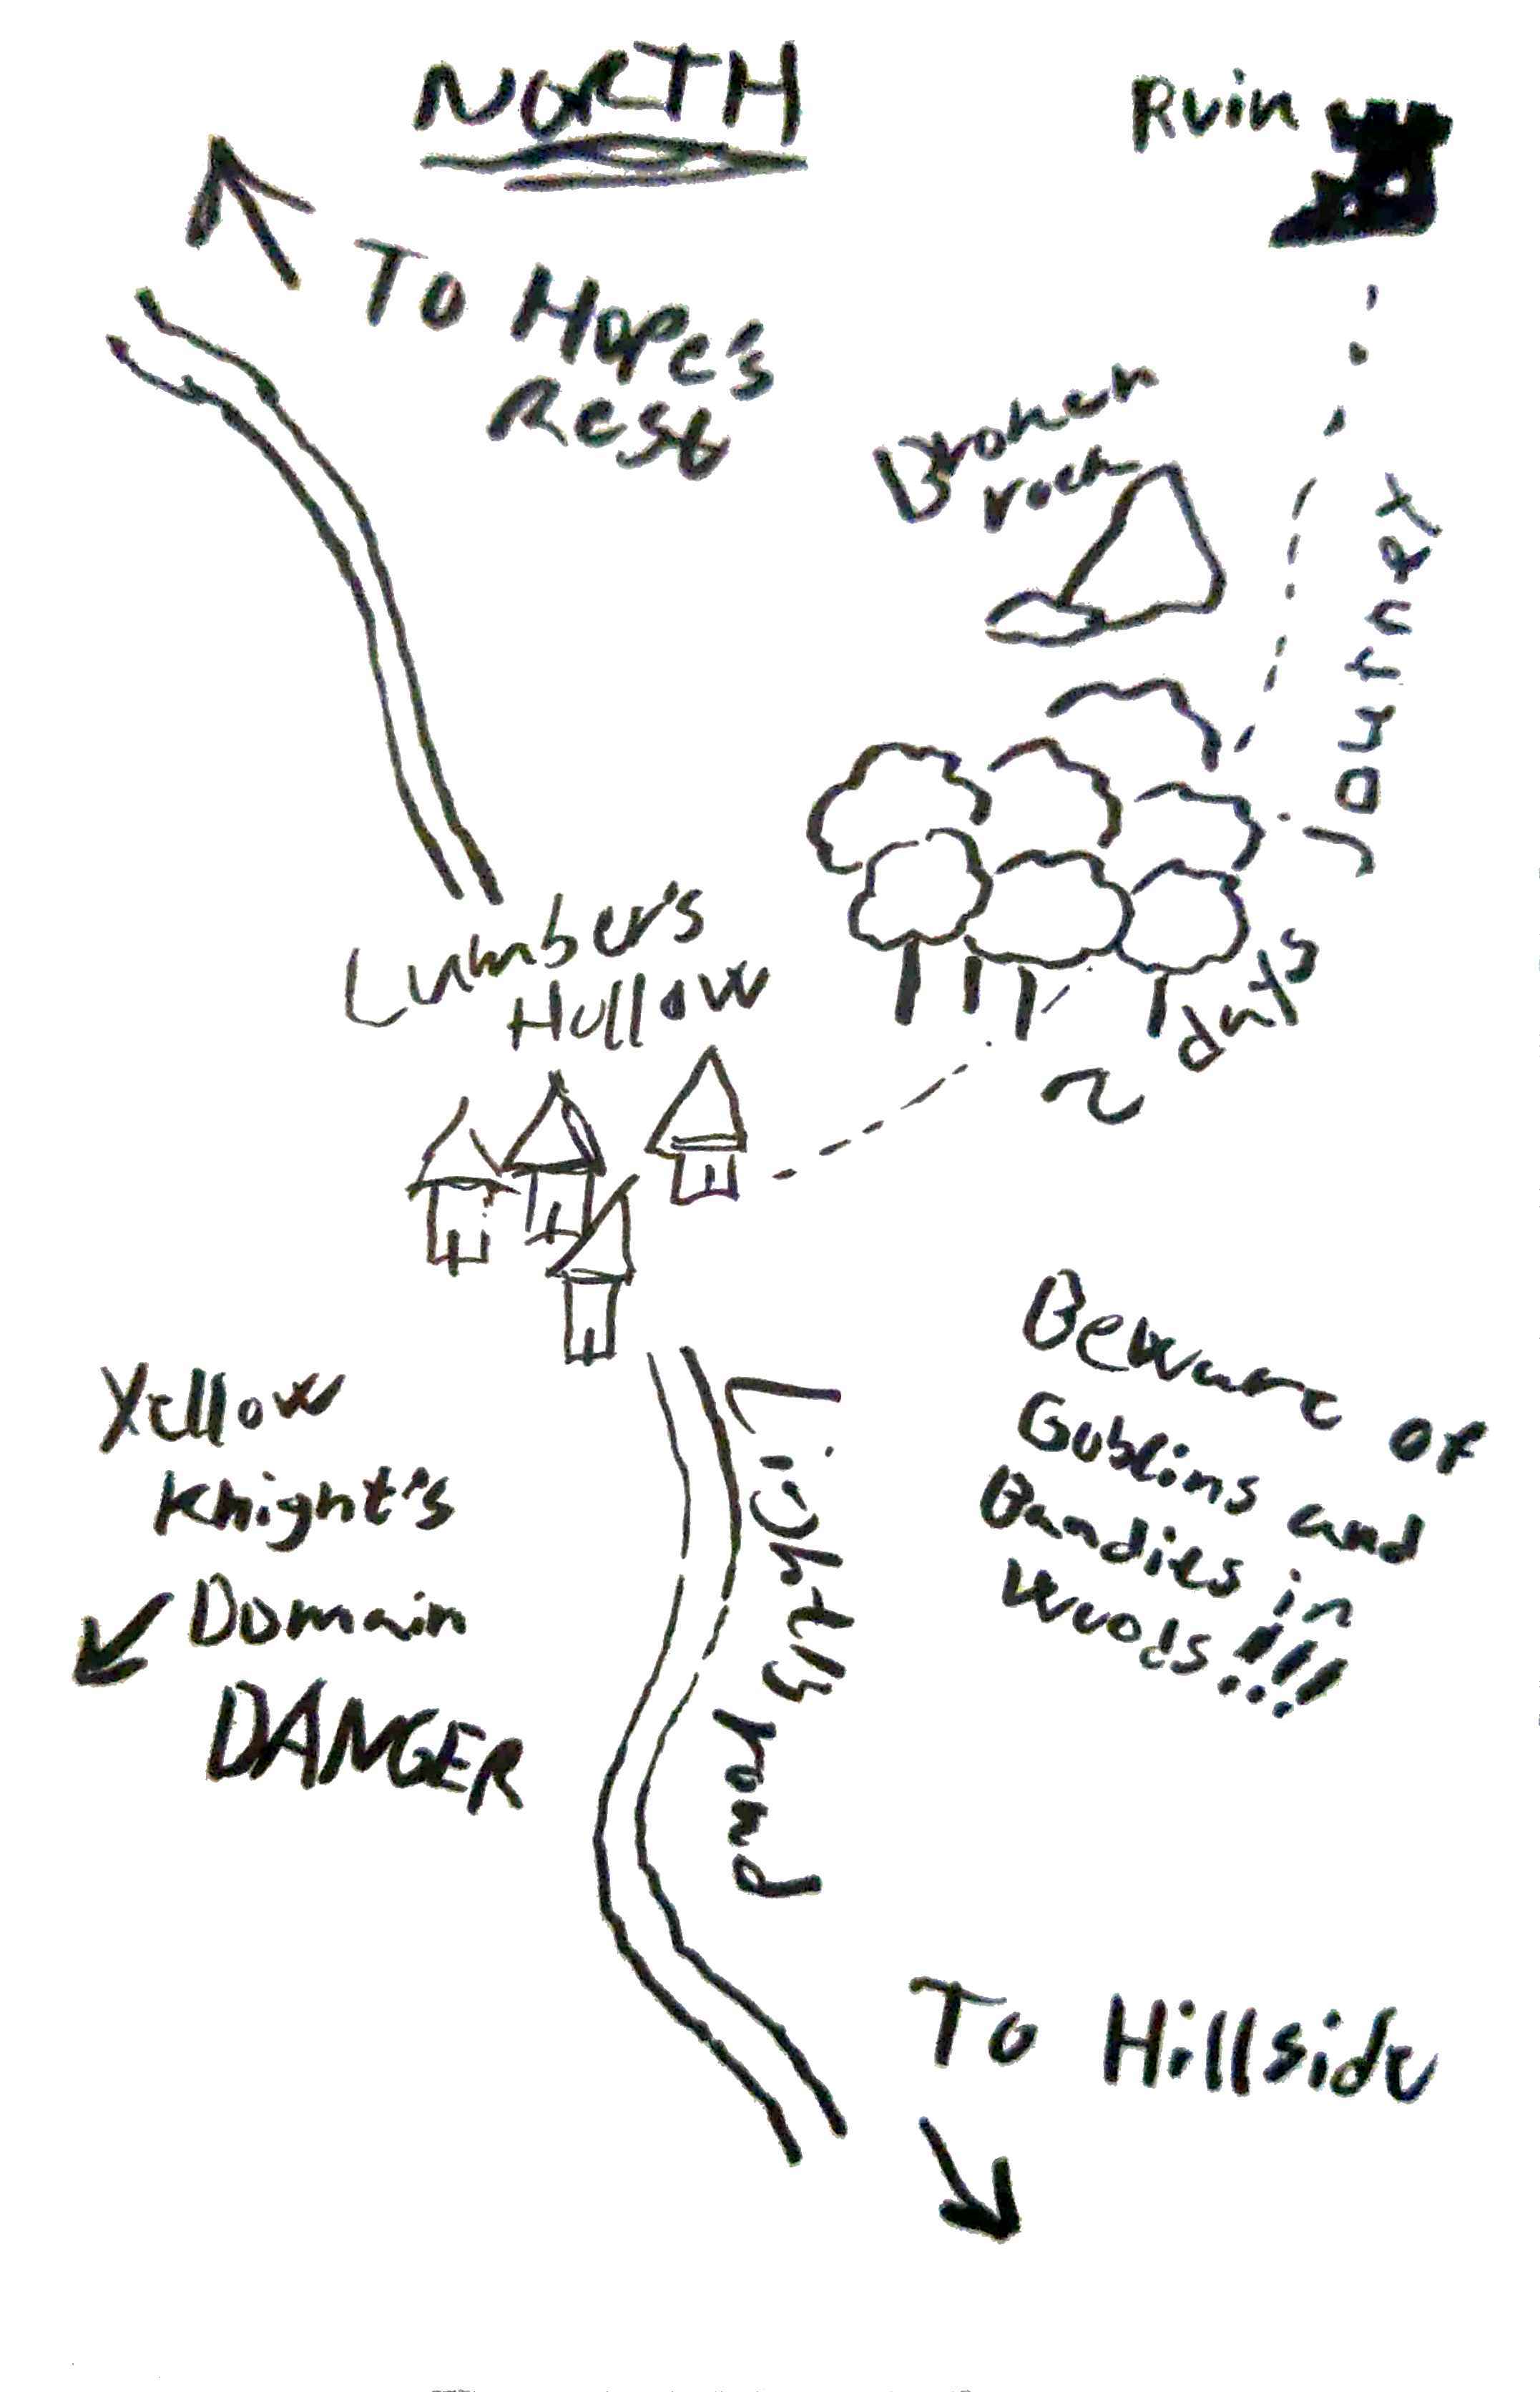 NORTH
Ruin
To Hope's
Rest
Broken
rock
Journey
2 days
Lumber's
Hollow
Beware of
Goblins and
Bandies in
Woods!!!
Yellow
Knight's
Domain
DANGER
road
To Hillside